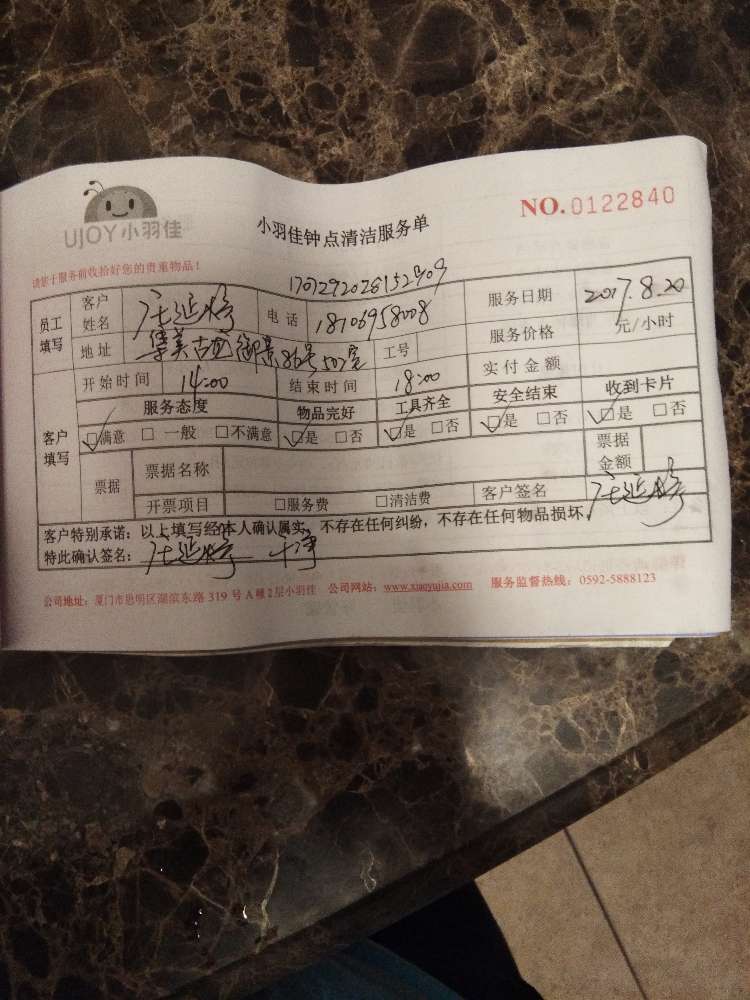 UJOY小羽佳
小羽佳钟点清洁服务单
NO.0122840
请您于服务前收拾好您的贵重物品！
员工填写 客户姓名 庄延 电话 18106958008 服务日期 2017.8.20
服务价格 元/小时
地址 集美古 御景86号502室 工号 实付金额
客户填写 开始时间 14:00 结束时间 18:00
服务态度 物品完好 工具齐全 安全结束 收到卡片
☑满意 □ 一般 □不满意 ☑是 □否 ☑是 □否 ☑是 □否 ☑是 □否
票据 票据名称 票据金额
开票项目 □服务费 □清洁费 客户签名 庄延
客户特别承诺：以上填写经本人确认属实，不存在任何纠纷，不存在任何物品损坏，
特此确认签名：庄延 干净
公司地址：厦门市思明区湖滨东路 319 号 A 幢 2 层小羽佳 公司网站：www.xiaoyujia.com 服务监督热线：0592-5888123